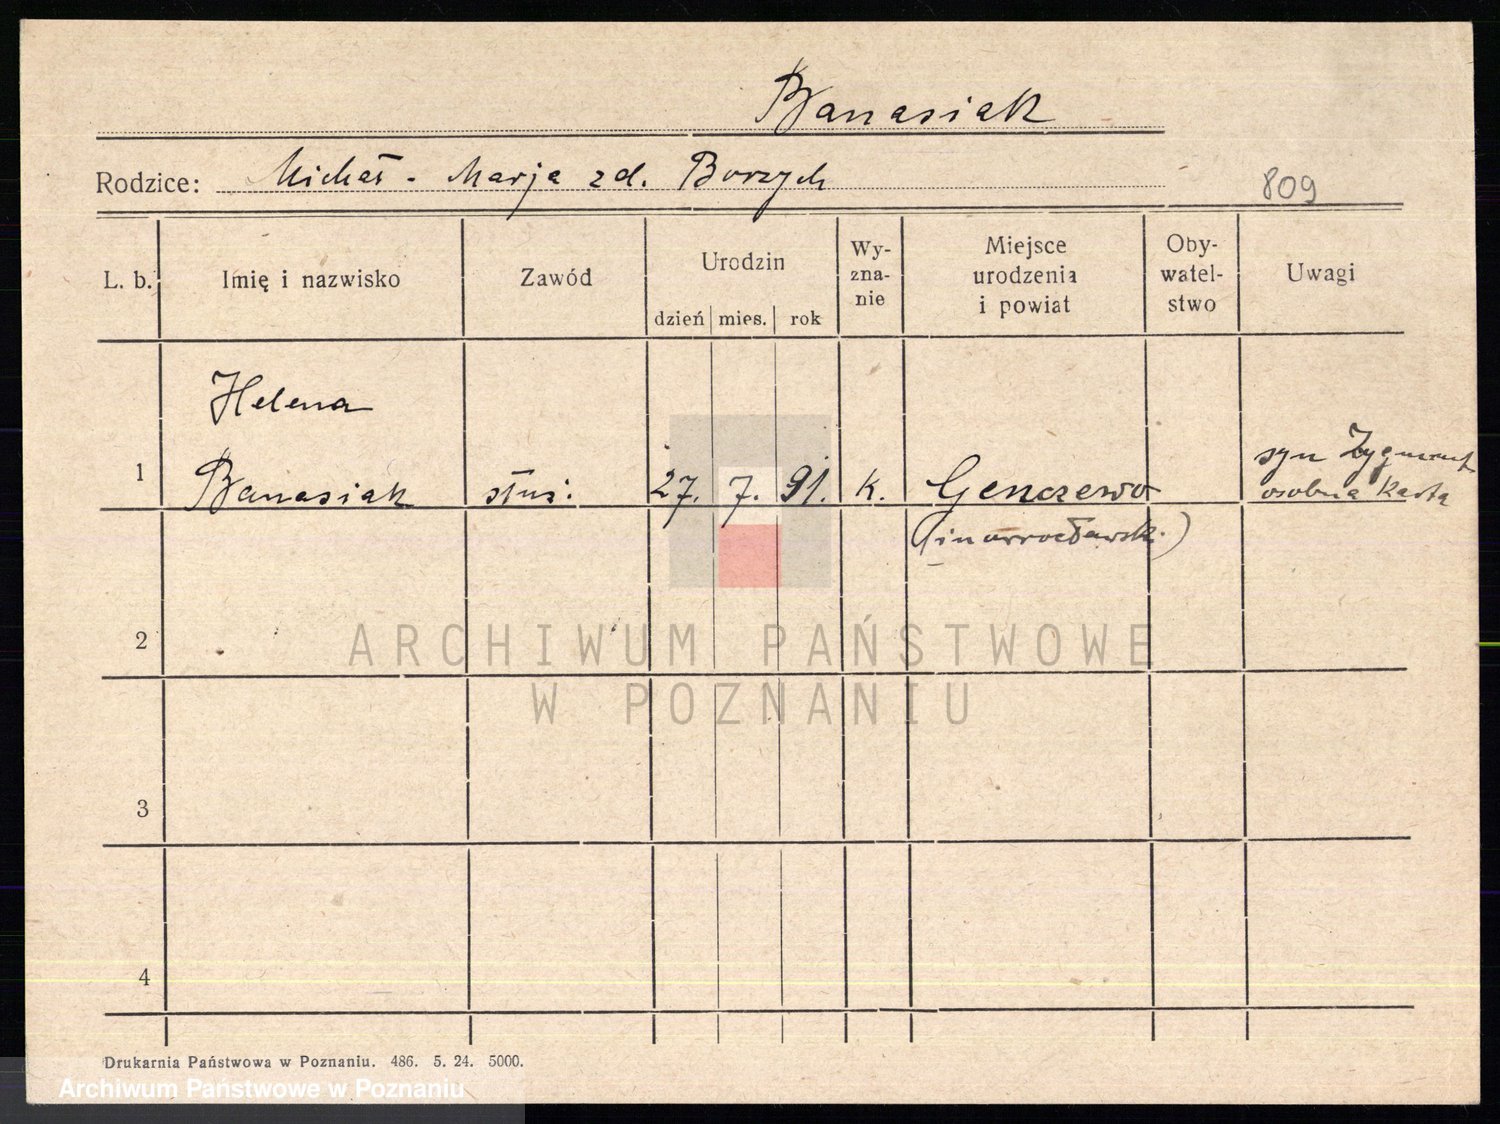 Banasiak
Rodzice: Michał - Marja zd. Borzych
809
L. b. Imię i nazwisko Zawód Urodzin dzień mies. rok Wy-zna-nie Miejsce urodzenia i powiat Oby-watel-stwo Uwagi
Helena
1 Banasiak służ. 27. 7. 91. k. Genczewo
syn Zygmunt
osobna karta
(inowrocławsk.)
2
3
4
ARCHIWUM PAŃSTWOWE
W POZNANIU
Drukarnia Państwowa w Poznaniu. 486. 5. 24. 5000.
Archiwum Państwowe w Poznaniu